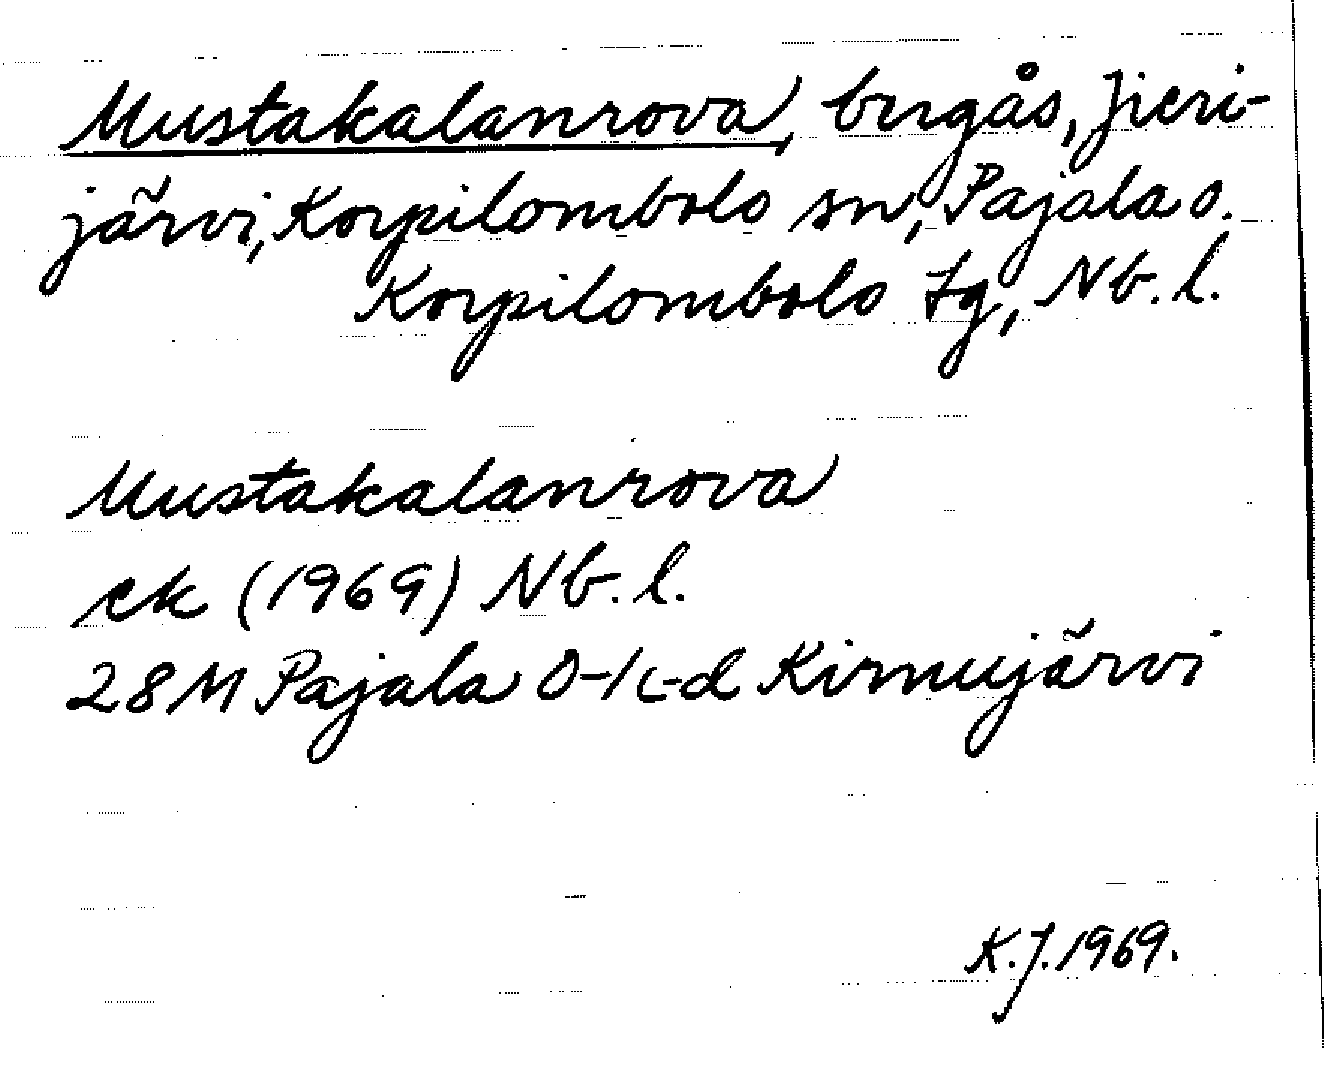 Mustakalanrova, bergås, Jieri-
järvi, Korpilombolo sn, Pajala o.
Korpilombolo tg, Nb. l.
Mustakalanrova
ek (1969) Nb. l.
28 M Pajala 0-1 c-d Kirnujärvi
K.J. 1969.